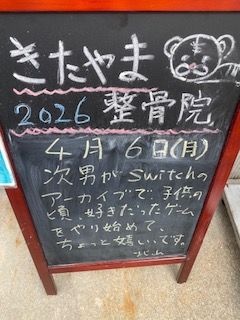 きたやま
2026 整骨院
4月6日(月)
次男がSwitchの
アーカイブで、子供の
頃、好きだったゲーム
をやり始めて、
ちょっと嬉しいです。
北山